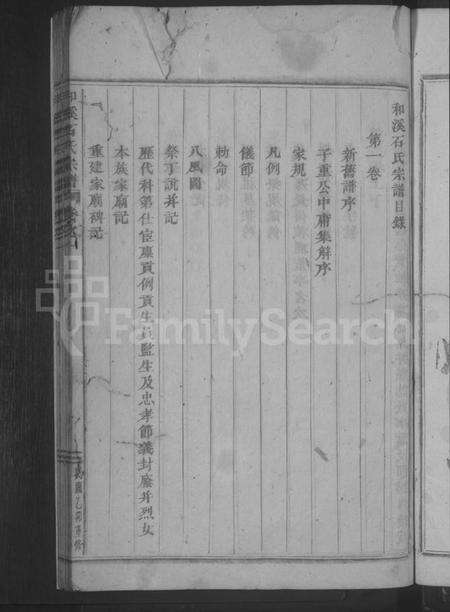 和溪石氏宗譜目錄
第一卷
新舊譜序
子重公中庸集解序
家規
凡例
儀節
勅命
八風圖
祭丁說并記
歷代科第仕宦廩貢例貢生員監生及忠孝節義封廕并烈女
本族家廟記
重建家廟碑記
和溪石氏宗譜
FamilySearch